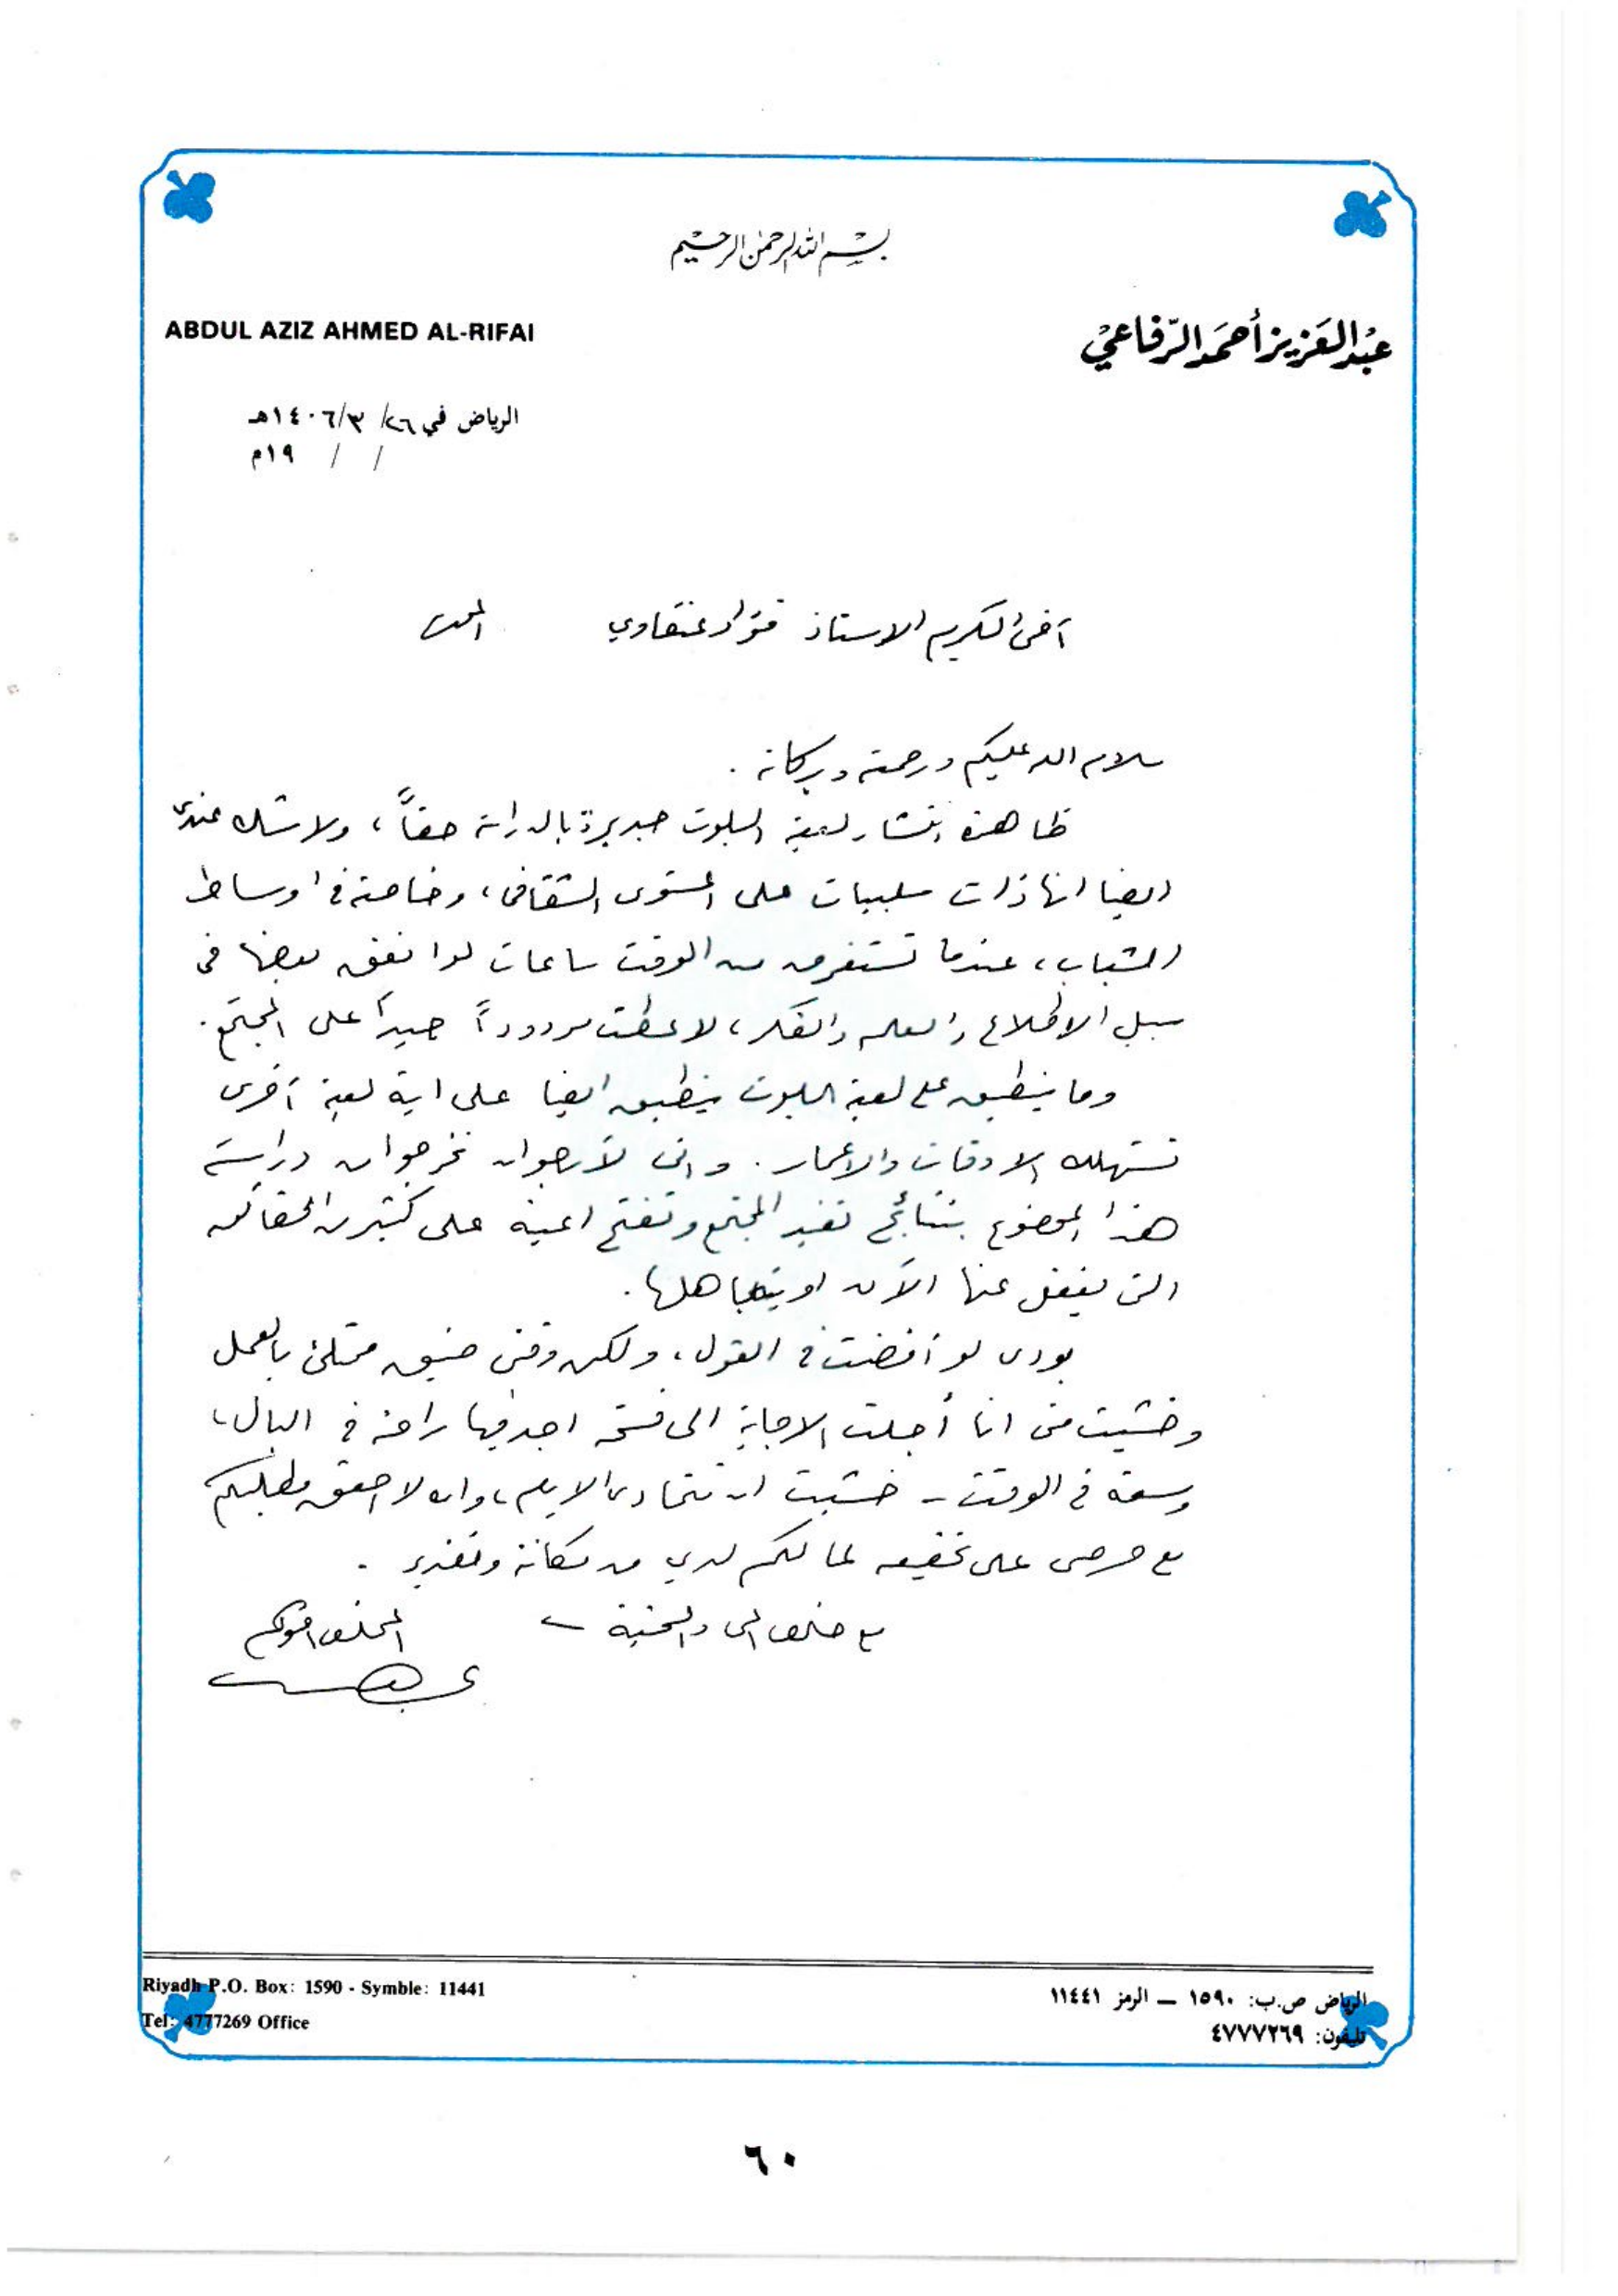 بسم الله الرحمن الرحيم
ABDUL AZIZ AHMED AL-RIFAI
عبد العزيز أحمد الرفاعي
الرياض في ٢٦/ ٣/ ١٤٠٦هـ
/ / ١٩م
أخي الكريم الاستاذ فؤاد عنقاوي المحترم
سلام الله عليكم ورحمته وبركاته .
ظاهرة انتشار لعبة البلوت جديرة بالدراسة حقاً، ولا شك عندي
ايضا انها ذات سلبيات على المستوى الثقافي، وخاصة في اوساط
الشباب، عندما تستغرق من الوقت ساعات لو انفق بعضها في
سبل الاطلاع والعلم والفكر، لاعطت مردوداً جيداً على المجتمع.
وما ينطبق على لعبة البلوت ينطبق ايضا على اية لعبة أخرى
تستهلك الاوقات والاعمار. واني لأرجو ان تخرجوا من دراسة
هذا الموضوع بنتائج تفيد المجتمع وتفتح اعينه على كثير من الحقائق
التي يغفل عنها الآن او يتجاهلها.
بودى لو أفضت في القول، ولكن وقتى ضيق ممتلئ بالعمل
وخشيت متى انا أجلت الاجابة الى فسحة اجد فيها راحة في البال،
وسعة في الوقت - خشيت ان تتمادى الايام، وان لا احقق مطلبكم
مع حرصى على تحقيقه لما لكم لدي من مكانة وتقدير .
مع خالص الود والتحية - المخلص اخوكم
Riyadh P.O. Box: 1590 - Symble: 11441
الرياض ص.ب: ١٥٩٠ – الرمز ١١٤٤١
Tel: 4777269 Office
تليفون: ٤٧٧٧٢٦٩
٦٠